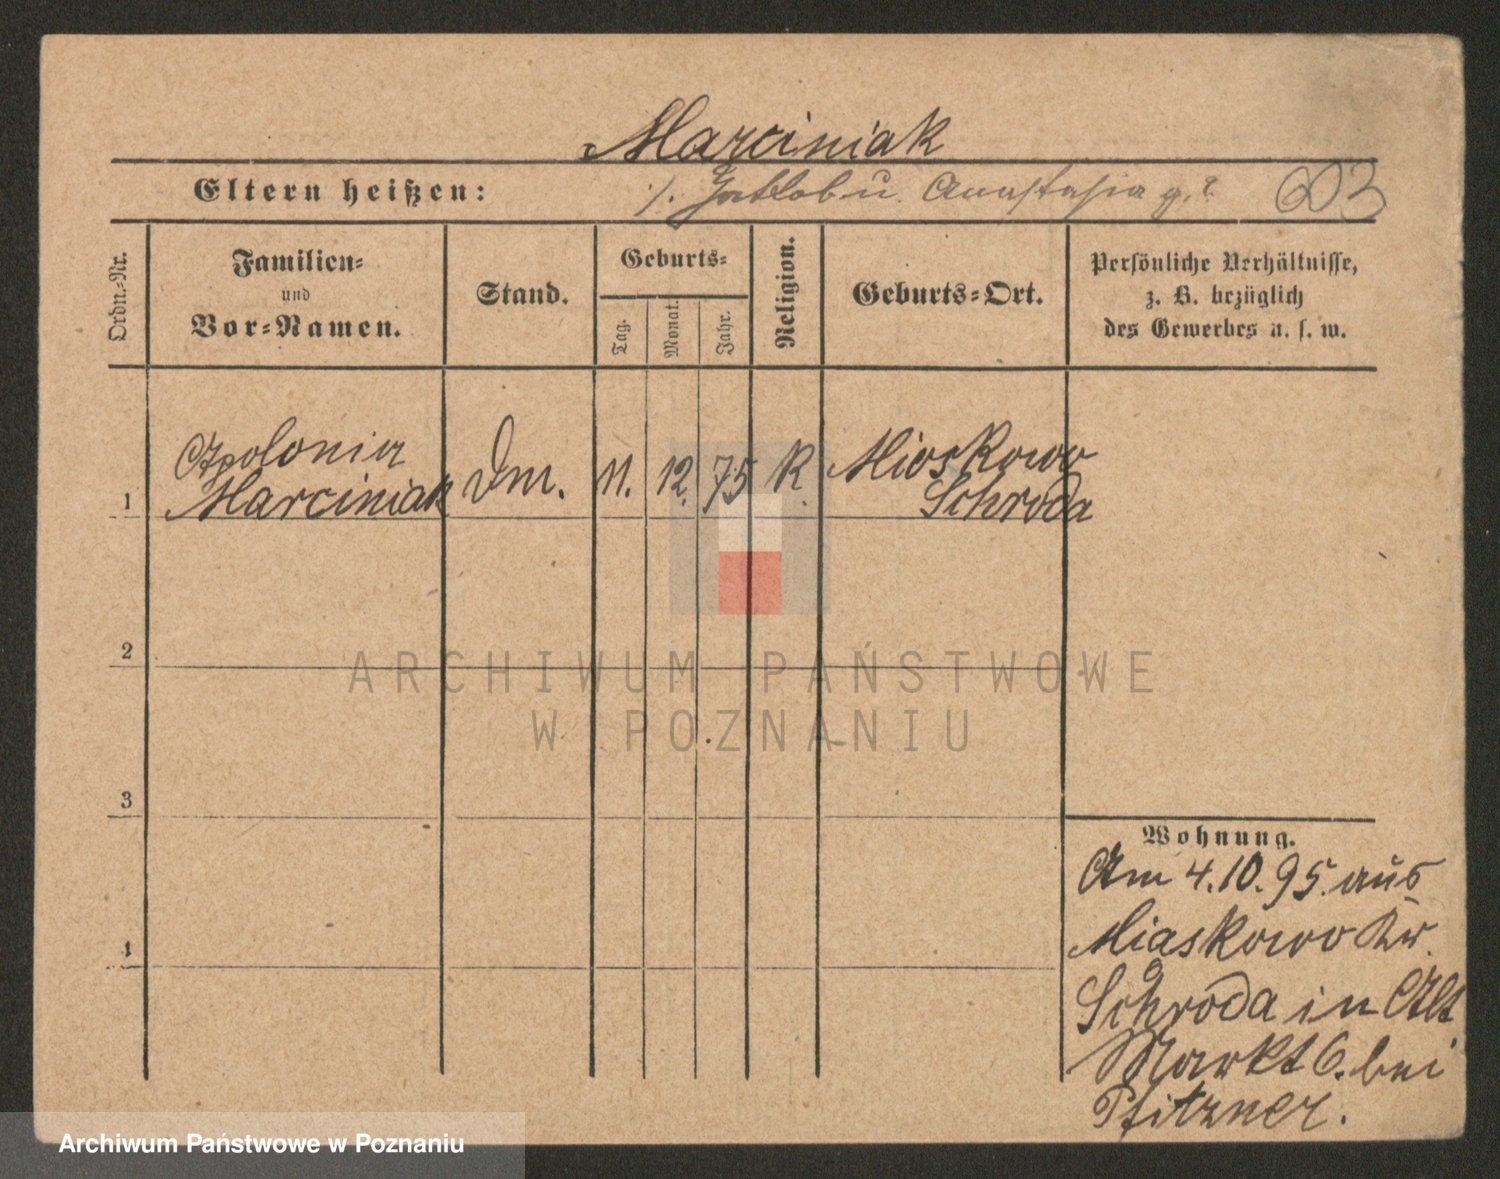 Marciniak
Eltern heißen: ./. Gottlob u. Anastasia g. ? 603
Ordn.-Nr.
Familien-
und
Vor-Namen.
Stand.
Geburts-
Tag.
Monat.
Jahr.
Religion.
Geburts-Ort.
Persönliche Verhältnisse,
z. B. bezüglich
des Gewerbes u. s. w.
Apolonia
1 Marciniak Dm. 11. 12. 75 K. Mioskowo
Schroda
2
ARCHIWUM PAŃSTWOWE
W POZNANIU
3
Wohnung.
Am 4.10.95. aus
4 Miaskowo Kr.
Schroda in Alt
Markt 6. bei
Pfitzner.
Archiwum Państwowe w Poznaniu